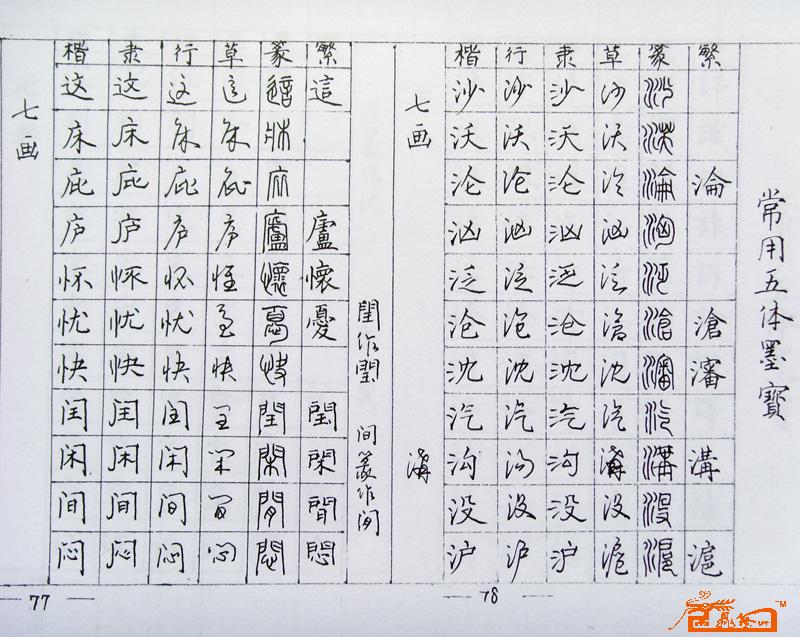 七画
楷 隶 行 草 篆 繁
这 这 这 这 這 這
床 床 床 床 牀
庇 庇 庇 庇 庇
庐 庐 庐 庐 廬 廬
怀 怀 怀 怀 懷 懷
忧 忧 忧 忧 憂 憂
快 快 快 快 快
闰 闰 闰 闰 閏 閏
闲 闲 闲 闲 閑 閑
间 间 间 间 間 間
闷 闷 闷 闷 悶 悶
77
闰作閏 间篆作间
七画
楷 行 隶 草 篆 繁
沙 沙 沙 沙 沙
沃 沃 沃 沃
沦 沦 沦 沦 淪 淪
汹 汹 汹 汹 洶
泛 泛 泛 泛 泛
沧 沧 沧 沧 滄 滄
沈 沈 沈 沈 瀋 瀋
汽 汽 汽 汽 汽
沟 沟 沟 溝 溝
没 没 没 没 没
沪 沪 沪 滬 滬 滬
78
常用五体墨寳